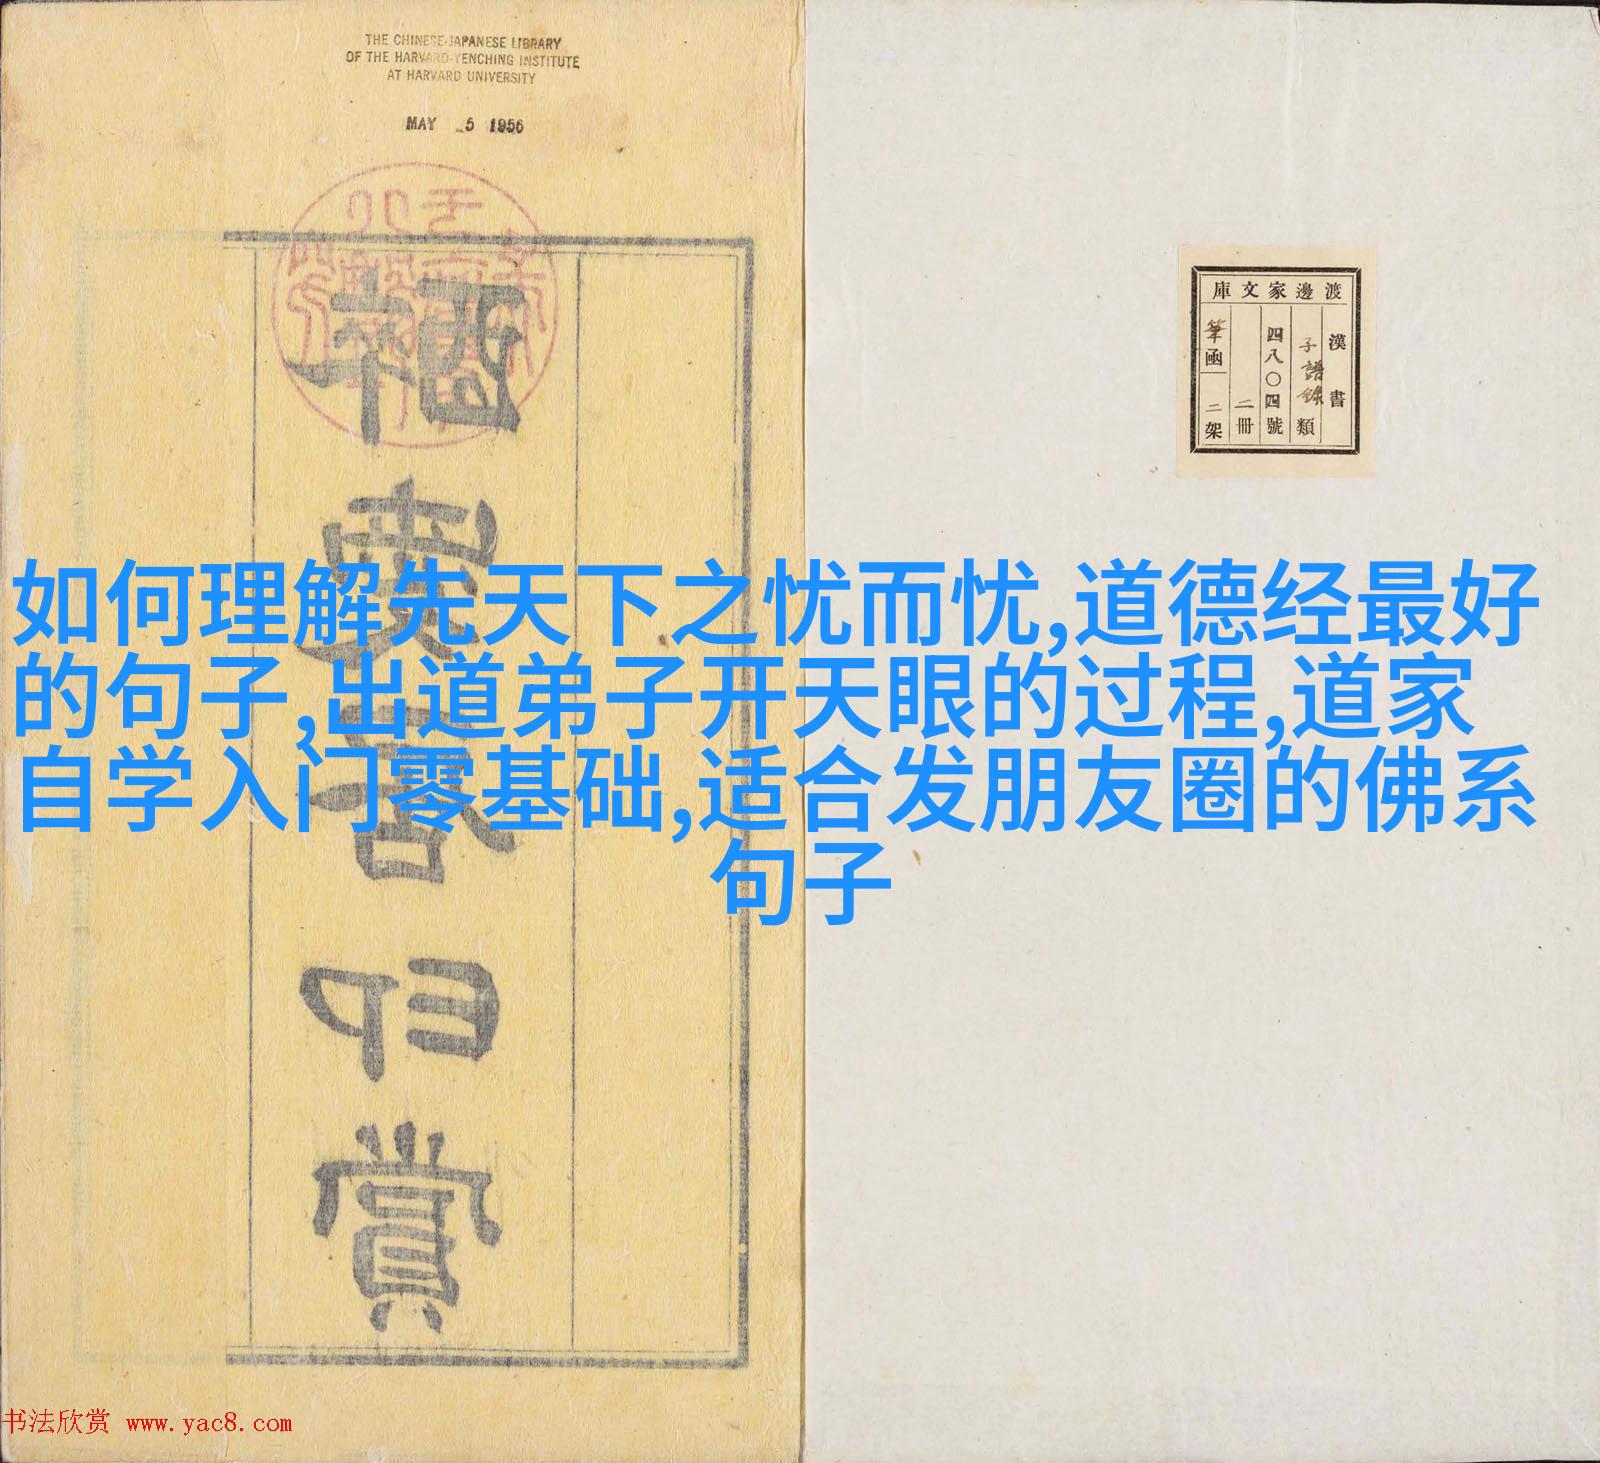 THE CHINESE-JAPANESE LIBRARY
OF THE HARVARD-YENCHING INSTITUTE
AT HARVARD UNIVERSITY
MAY 5 1956
渡邊家文庫
漢書
子譜錄類
四八〇四號
二冊
筆函二架
如何理解先天下之忧而忧,道德经最好
的句子,出道弟子开天眼的过程,道家
自学入门零基础,适合发朋友圈的佛系
句子
賞
书法欣赏 www.yac8.com